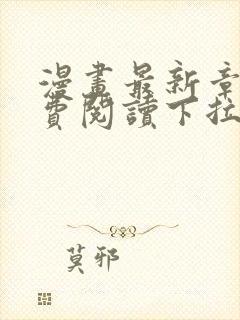 漫畫最新章
費閱讀下拉
莫邪